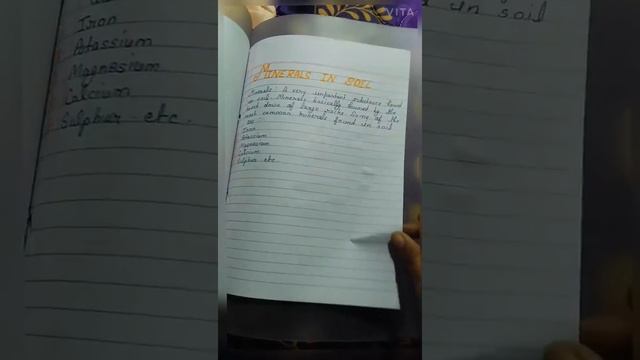 VITA
MINERALS IN SOIL
Minerals is very important substance found
in soil. Minerals basically formed by the
of large rocks. Some of the
most common minerals found in soil
are
Iron
Potassium
Magnesium
Calcium
Sulphur etc.
Iron
Potassium
Magnesium
Calcium
Sulphur etc.
in soil